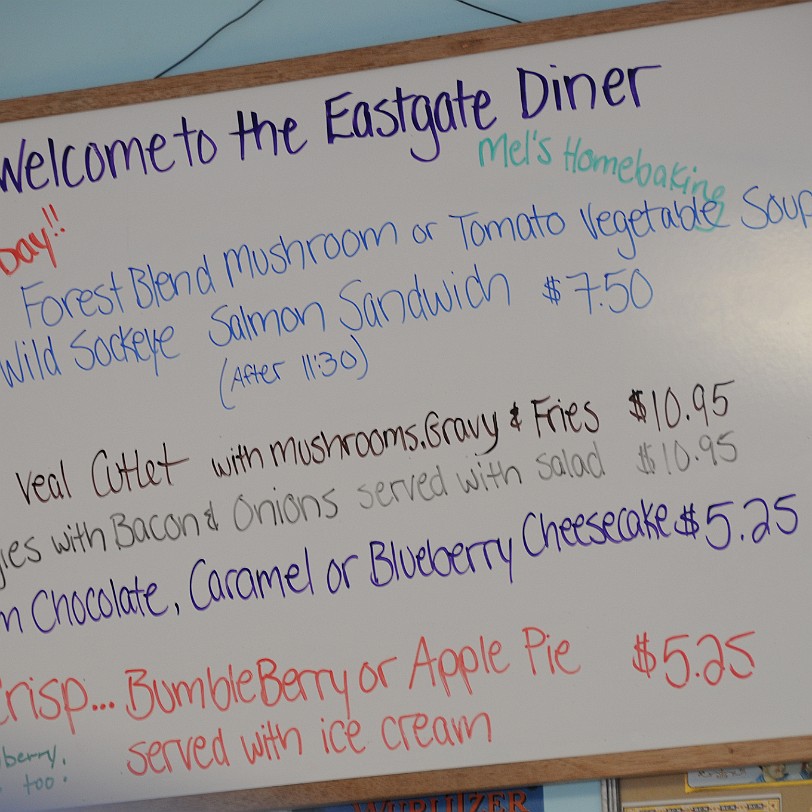 Welcome to the Eastgate Diner
Mel's Homebaking
Day!!
Forest Blend Mushroom or Tomato Vegetable Soup
Wild Sockeye Salmon Sandwich $7.50
(After 11:30)
Veal Cutlet with Mushrooms, Gravy & Fries $10.95
ies with Bacon & Onions served with salad $10.95
n Chocolate, Caramel or Blueberry Cheesecake $5.25
Crisp... BumbleBerry or Apple Pie $5.25
served with ice cream
berry,
too.
WURLITZER